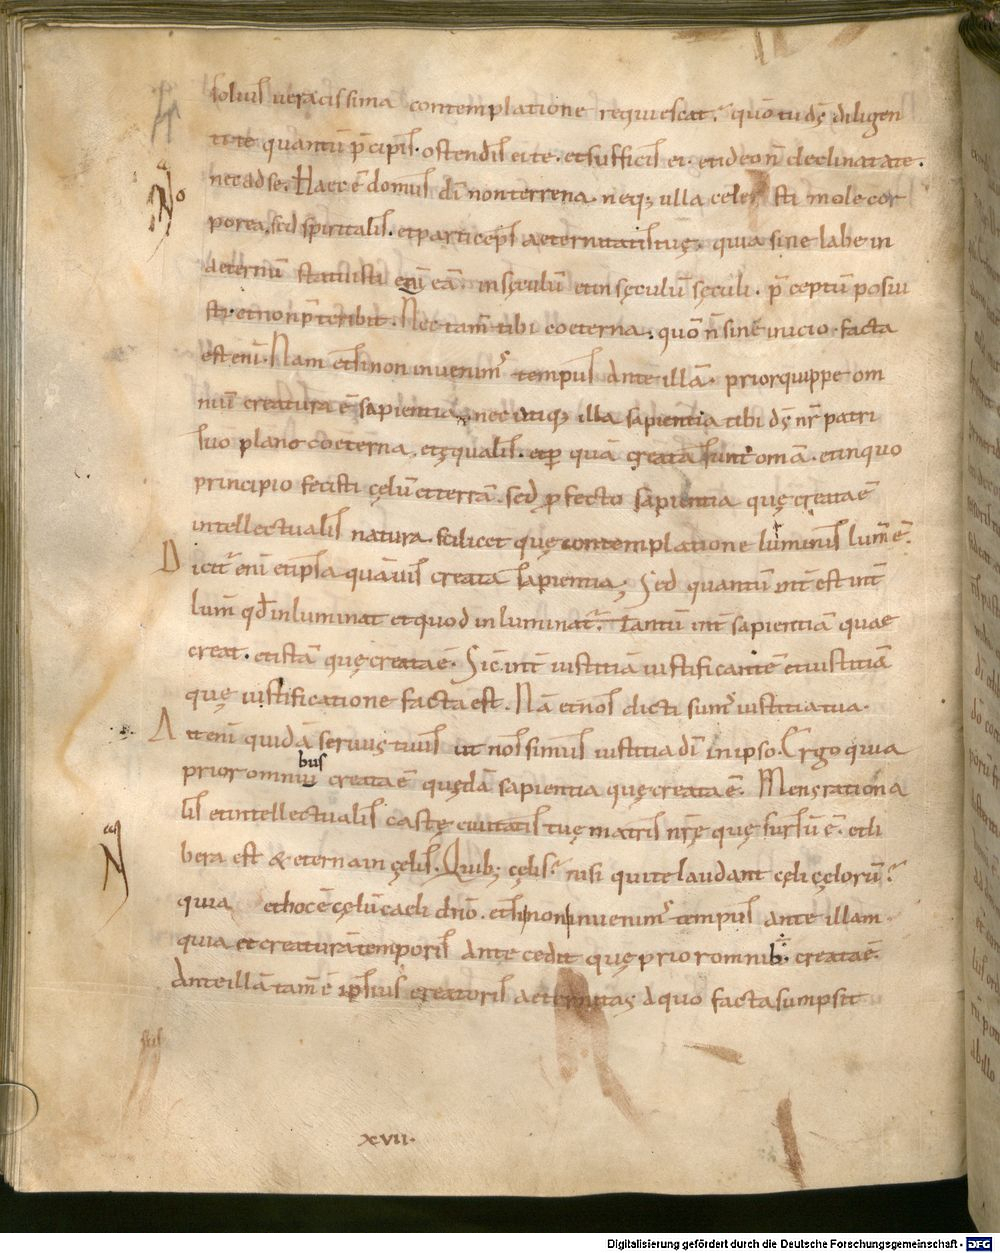 soluis ueracissima contemplatione requiescat. quō tu ds̄ diligen
ti te quantū p̄cipis. ostendis ei te. et sufficis ei. et ideo n̄ declinat a te.
nec ad se. Haec ē domus dī non terrena. neq; ulla celesti mole cor
porea. sed spiritalis. et particeps aeternitatis tuę. quia sine labe in
aeternū statuisti enī eā. in sęculū et in sęculū sęculi. p̄ceptū posui
sti. et non p̄teribit. Nec tam̄ tibi coeterna. quō n̄ sine inicio. facta
est enī. Nam etsi non inuenim' tempus ante illā. prior quippe om
niū creatura ē sapientia. nec utiq; illa sapientia tibi ds̄ nr̄ patri
suo plano coeterna. et ęqualis. et per quā creata sunt om̄a. et in quo
principio fecisti cęlū et terrā. sed profecto sapientia quę creata ē
intellectualis natura. scilicet quę contemplatione luminis lum̄ ē.
Dicit' enī et ipsa quāuis creata sapientia; Sed quantū int̄est int̄
lum̄ qd̄ inluminat et quod inluminat'. Tantū int̄ sapientiā quae
creat. et istā quę creata ē. Sic int̄ iustitiā iustificantē et iustitiā
quę iustificatione facta est. Nā et nos dicti sum' iustitia tua.
Ait enī quidā seruus tuus ut nos simus iustitia dī in ipso. Ergo quia
bus
prior omniū creata ē quędā sapientia quę creata ē. Mens rationa
lis et intellectualis castę ciuitatis tuę matris nr̄ę quę sursū ē. et li
bera est & eterna in cęlis. Quib; cęlis? nisi qui te laudant cęli cęlorū?
quia et hoc ē cęlū caeli dn̄o. etsi non inuenim' tempus ante illam.
quia et creaturā temporis antecedit quę prior omnib. creata ē.
Ante illā tam̄ ē ipsius creatoris aeternitas a quo facta sumpsit
xvii.
Digitalisierung gefördert durch die Deutsche Forschungsgemeinschaft - DFG